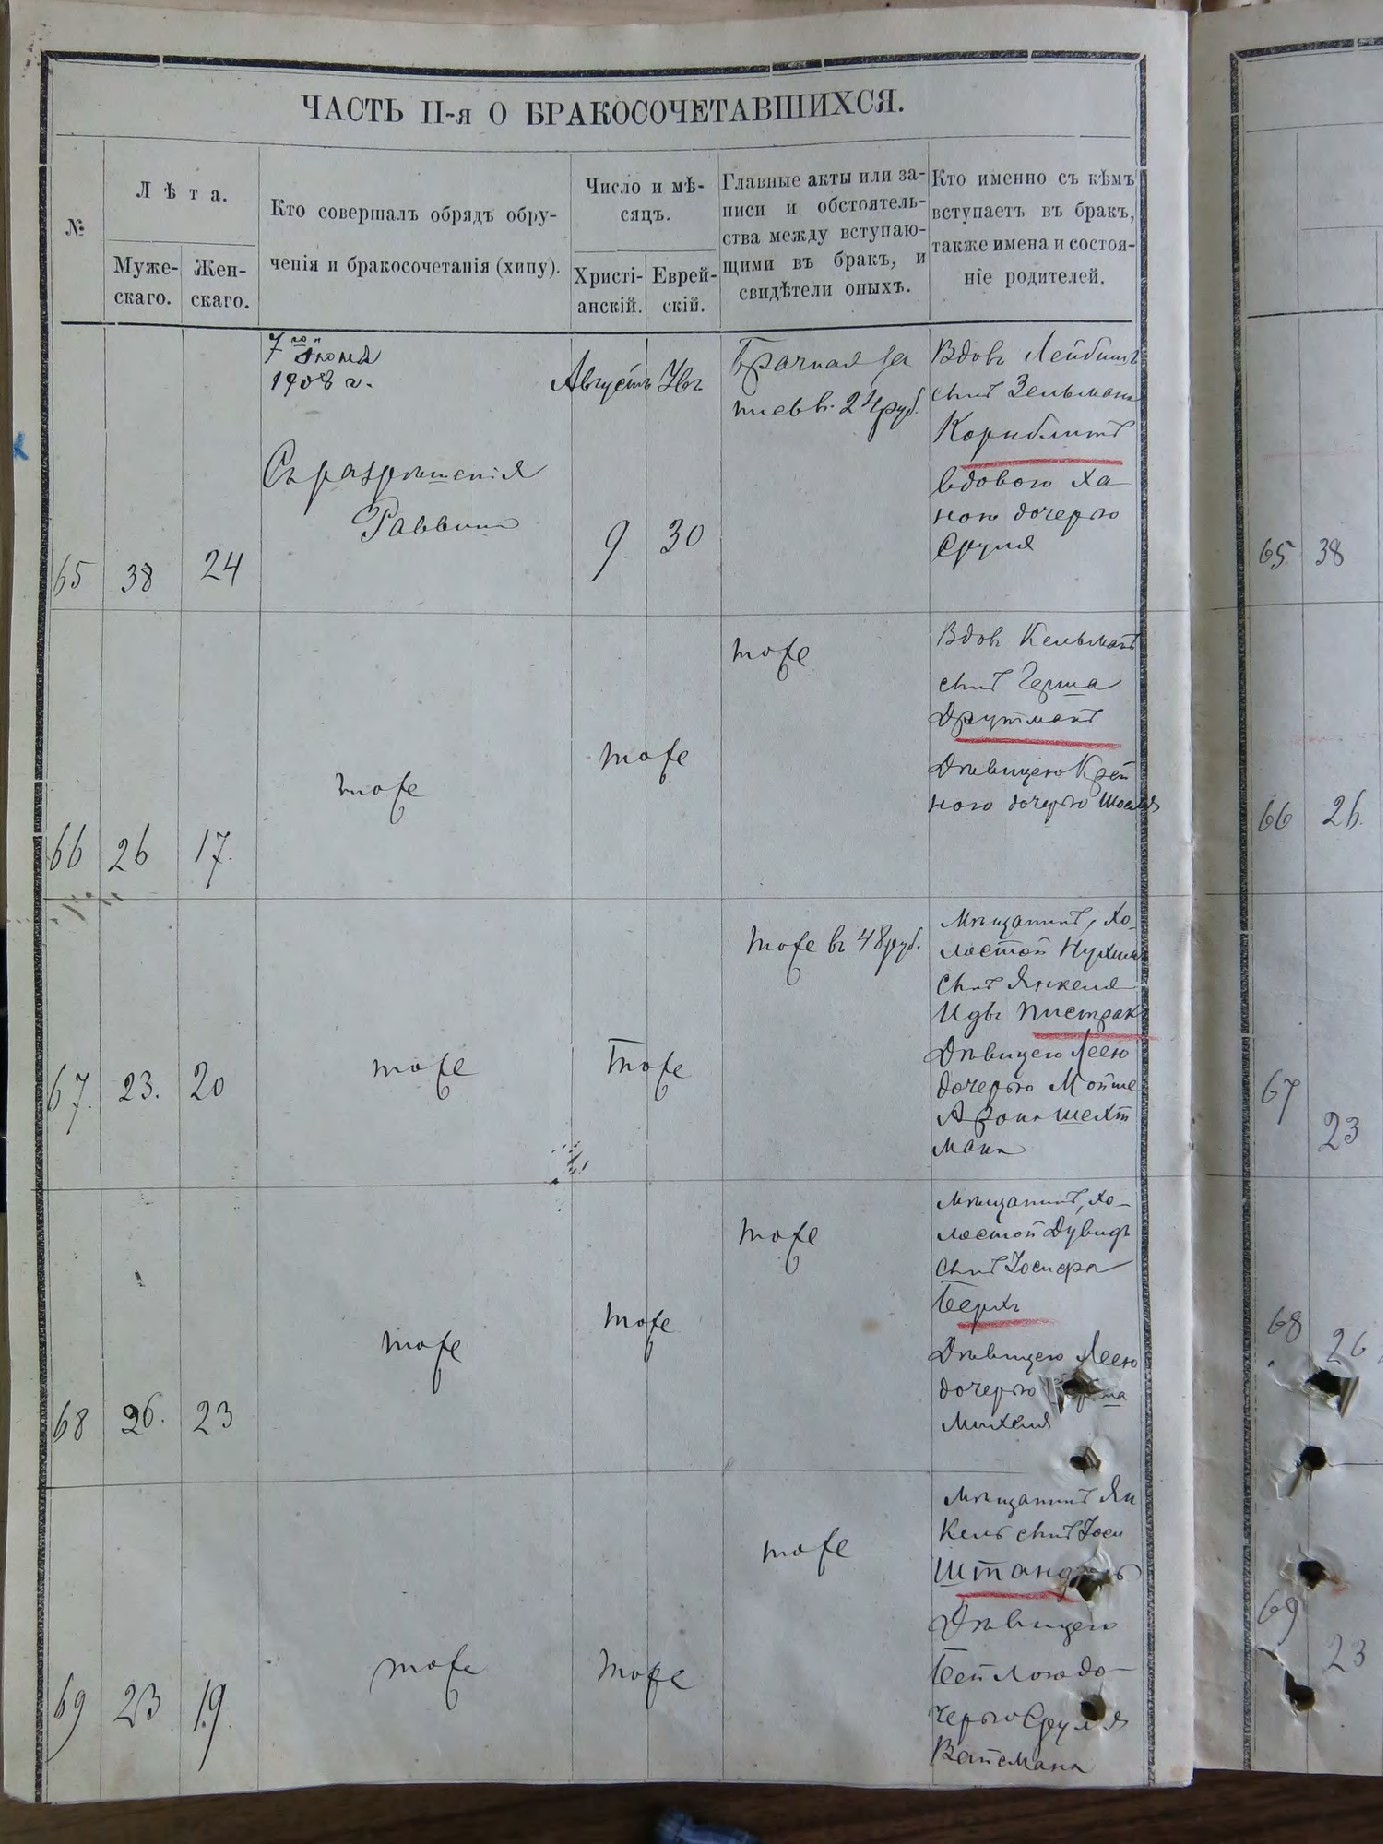 ЧАСТЬ II-я О БРАКОСОЧЕТАВШИХСЯ.
№
Лѣта.
Муже-
скаго.
Жен-
скаго.
Кто совершалъ обрядъ обру-
ченія и бракосочетанія (хипу).
Число и мѣ-
сяцъ.
Христі-
анскій.
Еврей-
скій.
Главные акты или за-
писи и обстоятель-
ства между вступаю-
щими въ бракъ, и
свидѣтели оныхъ.
Кто именно съ кѣмъ
вступаетъ въ бракъ,
также имена и состоя-
ніе родителей.
65
38
24
1908 г.
Съ разрѣшенія
Раввина
Августъ
9
30
Брачная за
Вдовъ Лейбишъ
сынъ Зельмана
Корнблитъ
вдовою Ха
ною дочерью
Сруля
66
26
17.
тоже
тоже
тоже
Вдовъ Кельманъ
сынъ Герша
Друтманъ
Дѣвицею Крей
ною дочерью
67.
23.
20
тоже
Тоже
тоже въ 48 руб.
Мѣщанинъ, хо-
лостой Нухимъ
сынъ Янкеля
Идъ Пистракъ
Дѣвицею Леею
дочерью Мойше
Арона Шехт
мана
68
26.
23
тоже
тоже
тоже
Мѣщанинъ, хо-
лостой Дувидъ
сынъ Іосифа
Берхъ
Дѣвицею Леею
дочерью
Михеля
69
23
19
тоже
тоже
тоже
Мѣщанинъ Ян
кель сынъ Іоси
Дѣвицею
Бейлою до-
черью Сруля
Вайсмана
65 38
66 26.
67
23
68 26
69
23